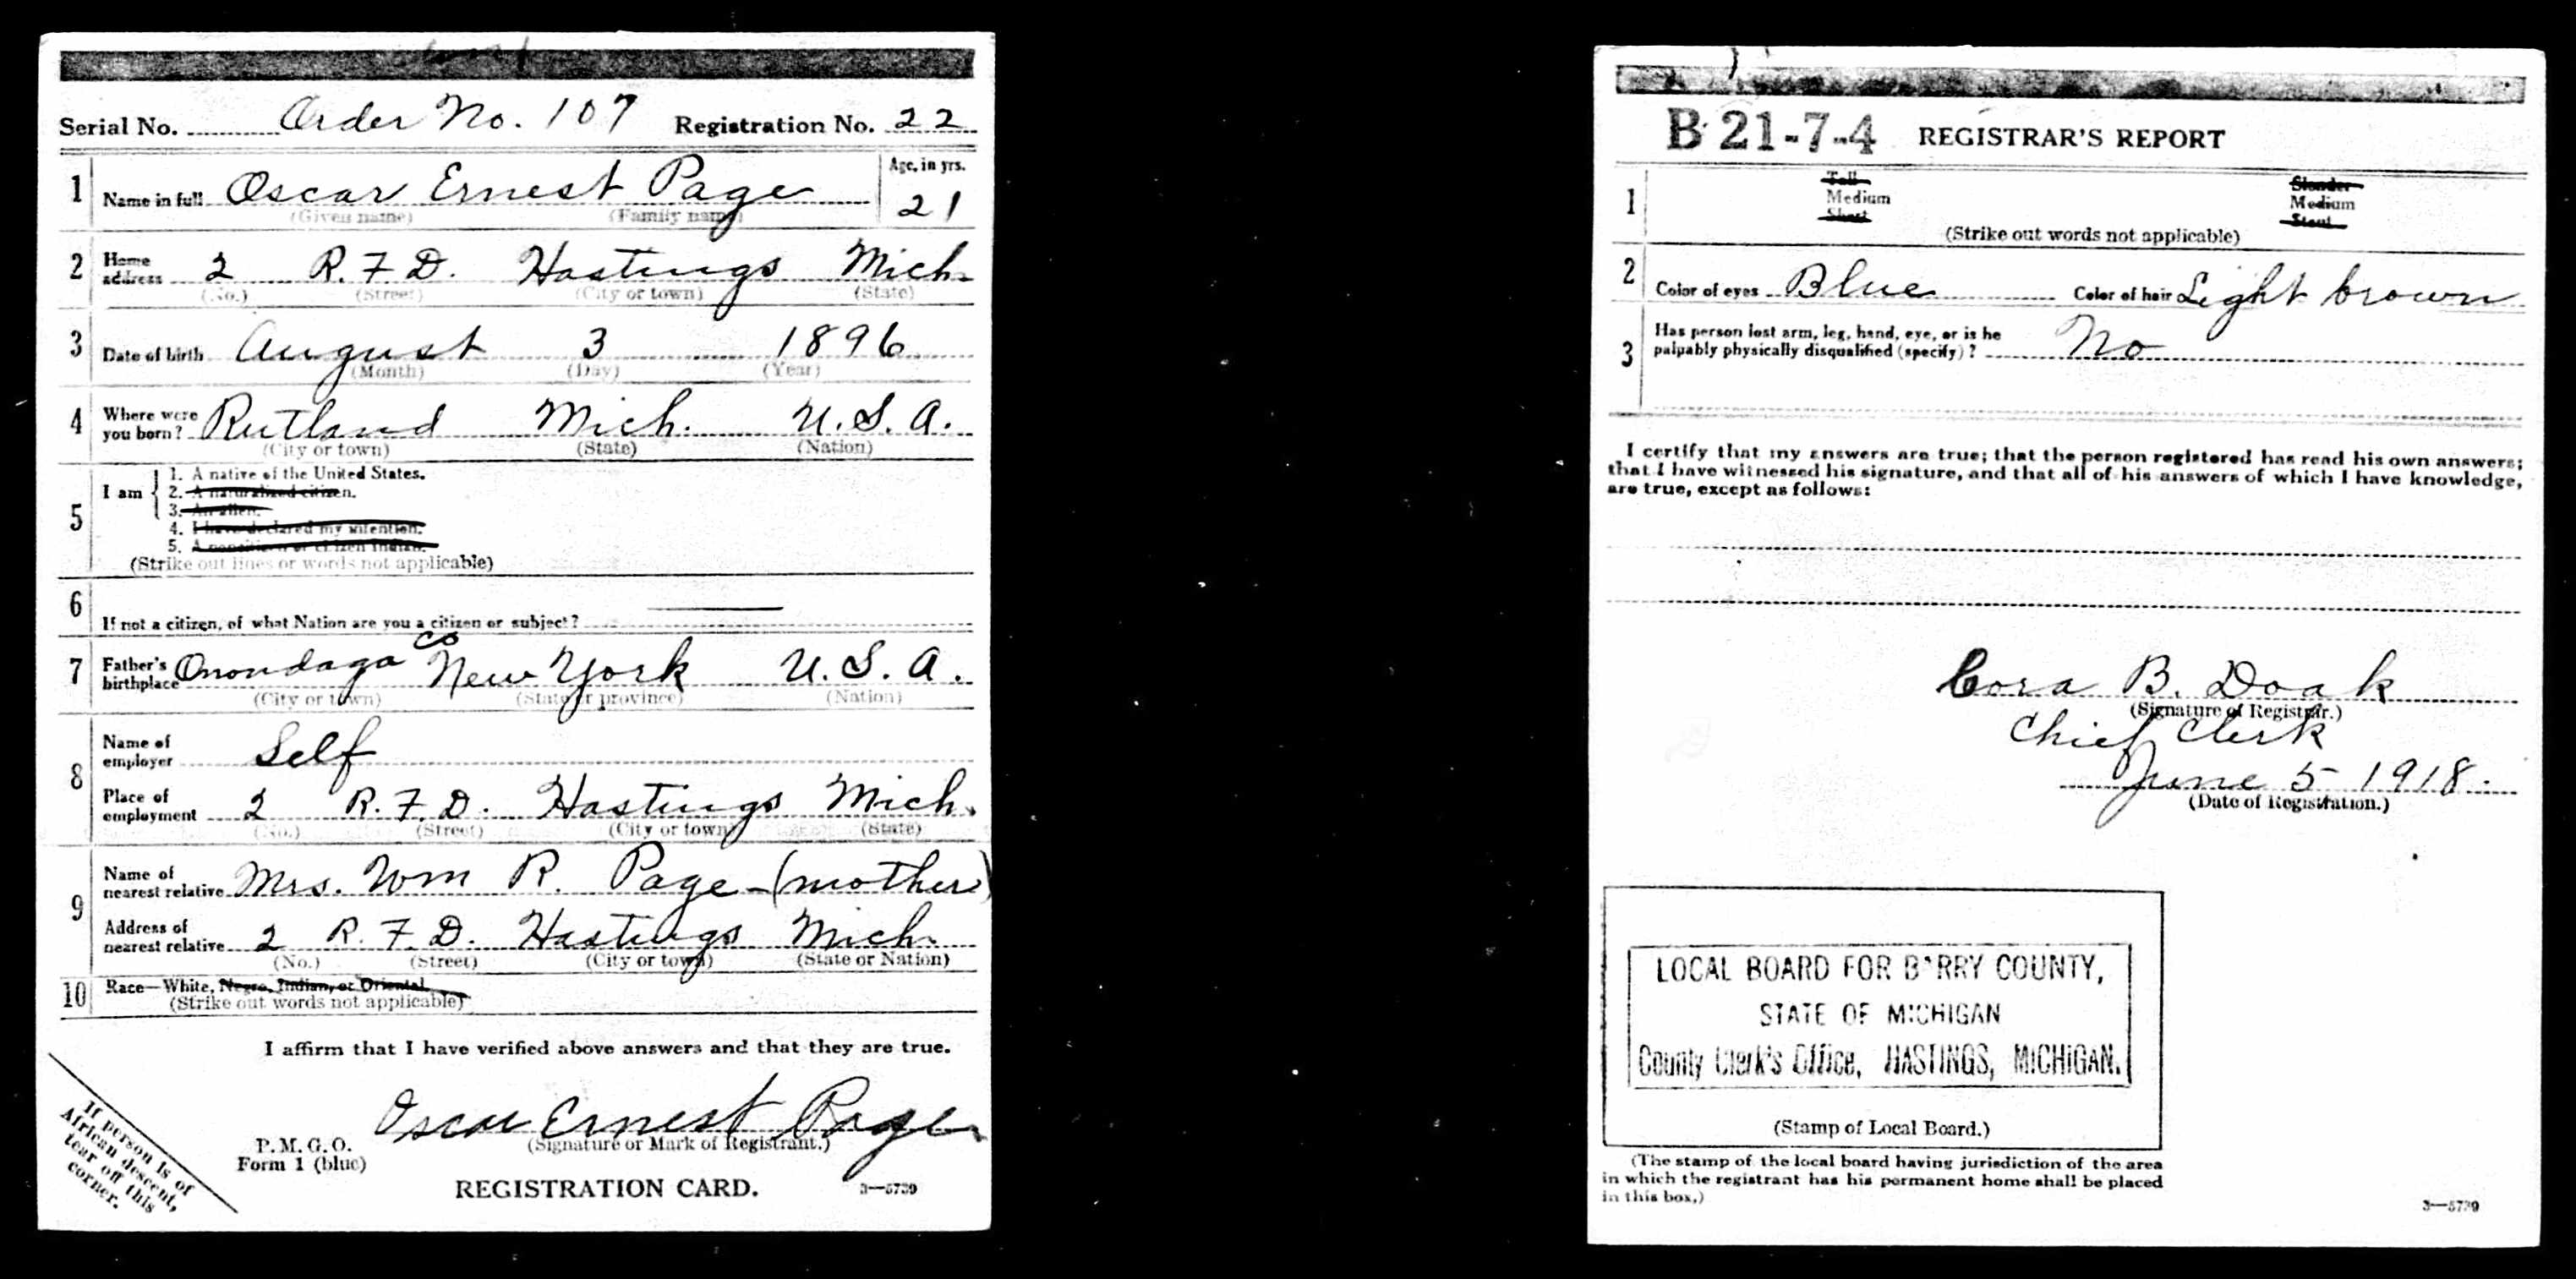 Serial No. Order No. 107 Registration No. 22
1 Name in full Oscar Ernest Page Age, in yrs. 21
(Given name) (Family name)
2 Home address 2 R.F.D. Hastings Mich.
(No.) (Street) (City or town) (State)
3 Date of birth August 3 1896
(Month) (Day) (Year)
4 Where were you born? Rutland Mich. U.S.A.
(City or town) (State) (Nation)
5 I am
1. A native of the United States.
2. A naturalized citizen.
3. An alien.
4. I have declared my intention.
5. A noncitizen or citizen Indian.
(Strike out lines or words not applicable)
6 If not a citizen, of what Nation are you a citizen or subject?
7 Father's birthplace Onondaga Co New York U.S.A.
(City or town) (State or province) (Nation)
8 Name of employer Self
Place of employment 2 R.F.D. Hastings Mich.
(No.) (Street) (City or town) (State)
9 Name of nearest relative Mrs. Wm R. Page - (mother)
Address of nearest relative 2 R.F.D. Hastings Mich.
(No.) (Street) (City or town) (State or Nation)
10 Race—White, Negro, Indian, or Oriental
(Strike out words not applicable)
I affirm that I have verified above answers and that they are true.
Oscar Ernest Page
(Signature or Mark of Registrant.)
P.M.G.O.
Form 1 (blue)
REGISTRATION CARD. 3—5739
If person is of
African descent,
tear off this
corner.
B 21-7-4 REGISTRAR'S REPORT
1 Tall Slender
Medium Medium
Short Stout
(Strike out words not applicable)
2 Color of eyes Blue Color of hair Light brown
3 Has person lost arm, leg, hand, eye, or is he
palpably physically disqualified (specify)? No
I certify that my answers are true; that the person registered has read his own answers;
that I have witnessed his signature, and that all of his answers of which I have knowledge,
are true, except as follows:
Cora B. Doak
(Signature of Registrar.)
Chief Clerk
June 5 1918.
(Date of Registration.)
LOCAL BOARD FOR BARRY COUNTY,
STATE OF MICHIGAN
County Clerk's Office, HASTINGS, MICHIGAN.
(Stamp of Local Board.)
(The stamp of the local board having jurisdiction of the area
in which the registrant has his permanent home shall be placed
in this box.)
3—5739